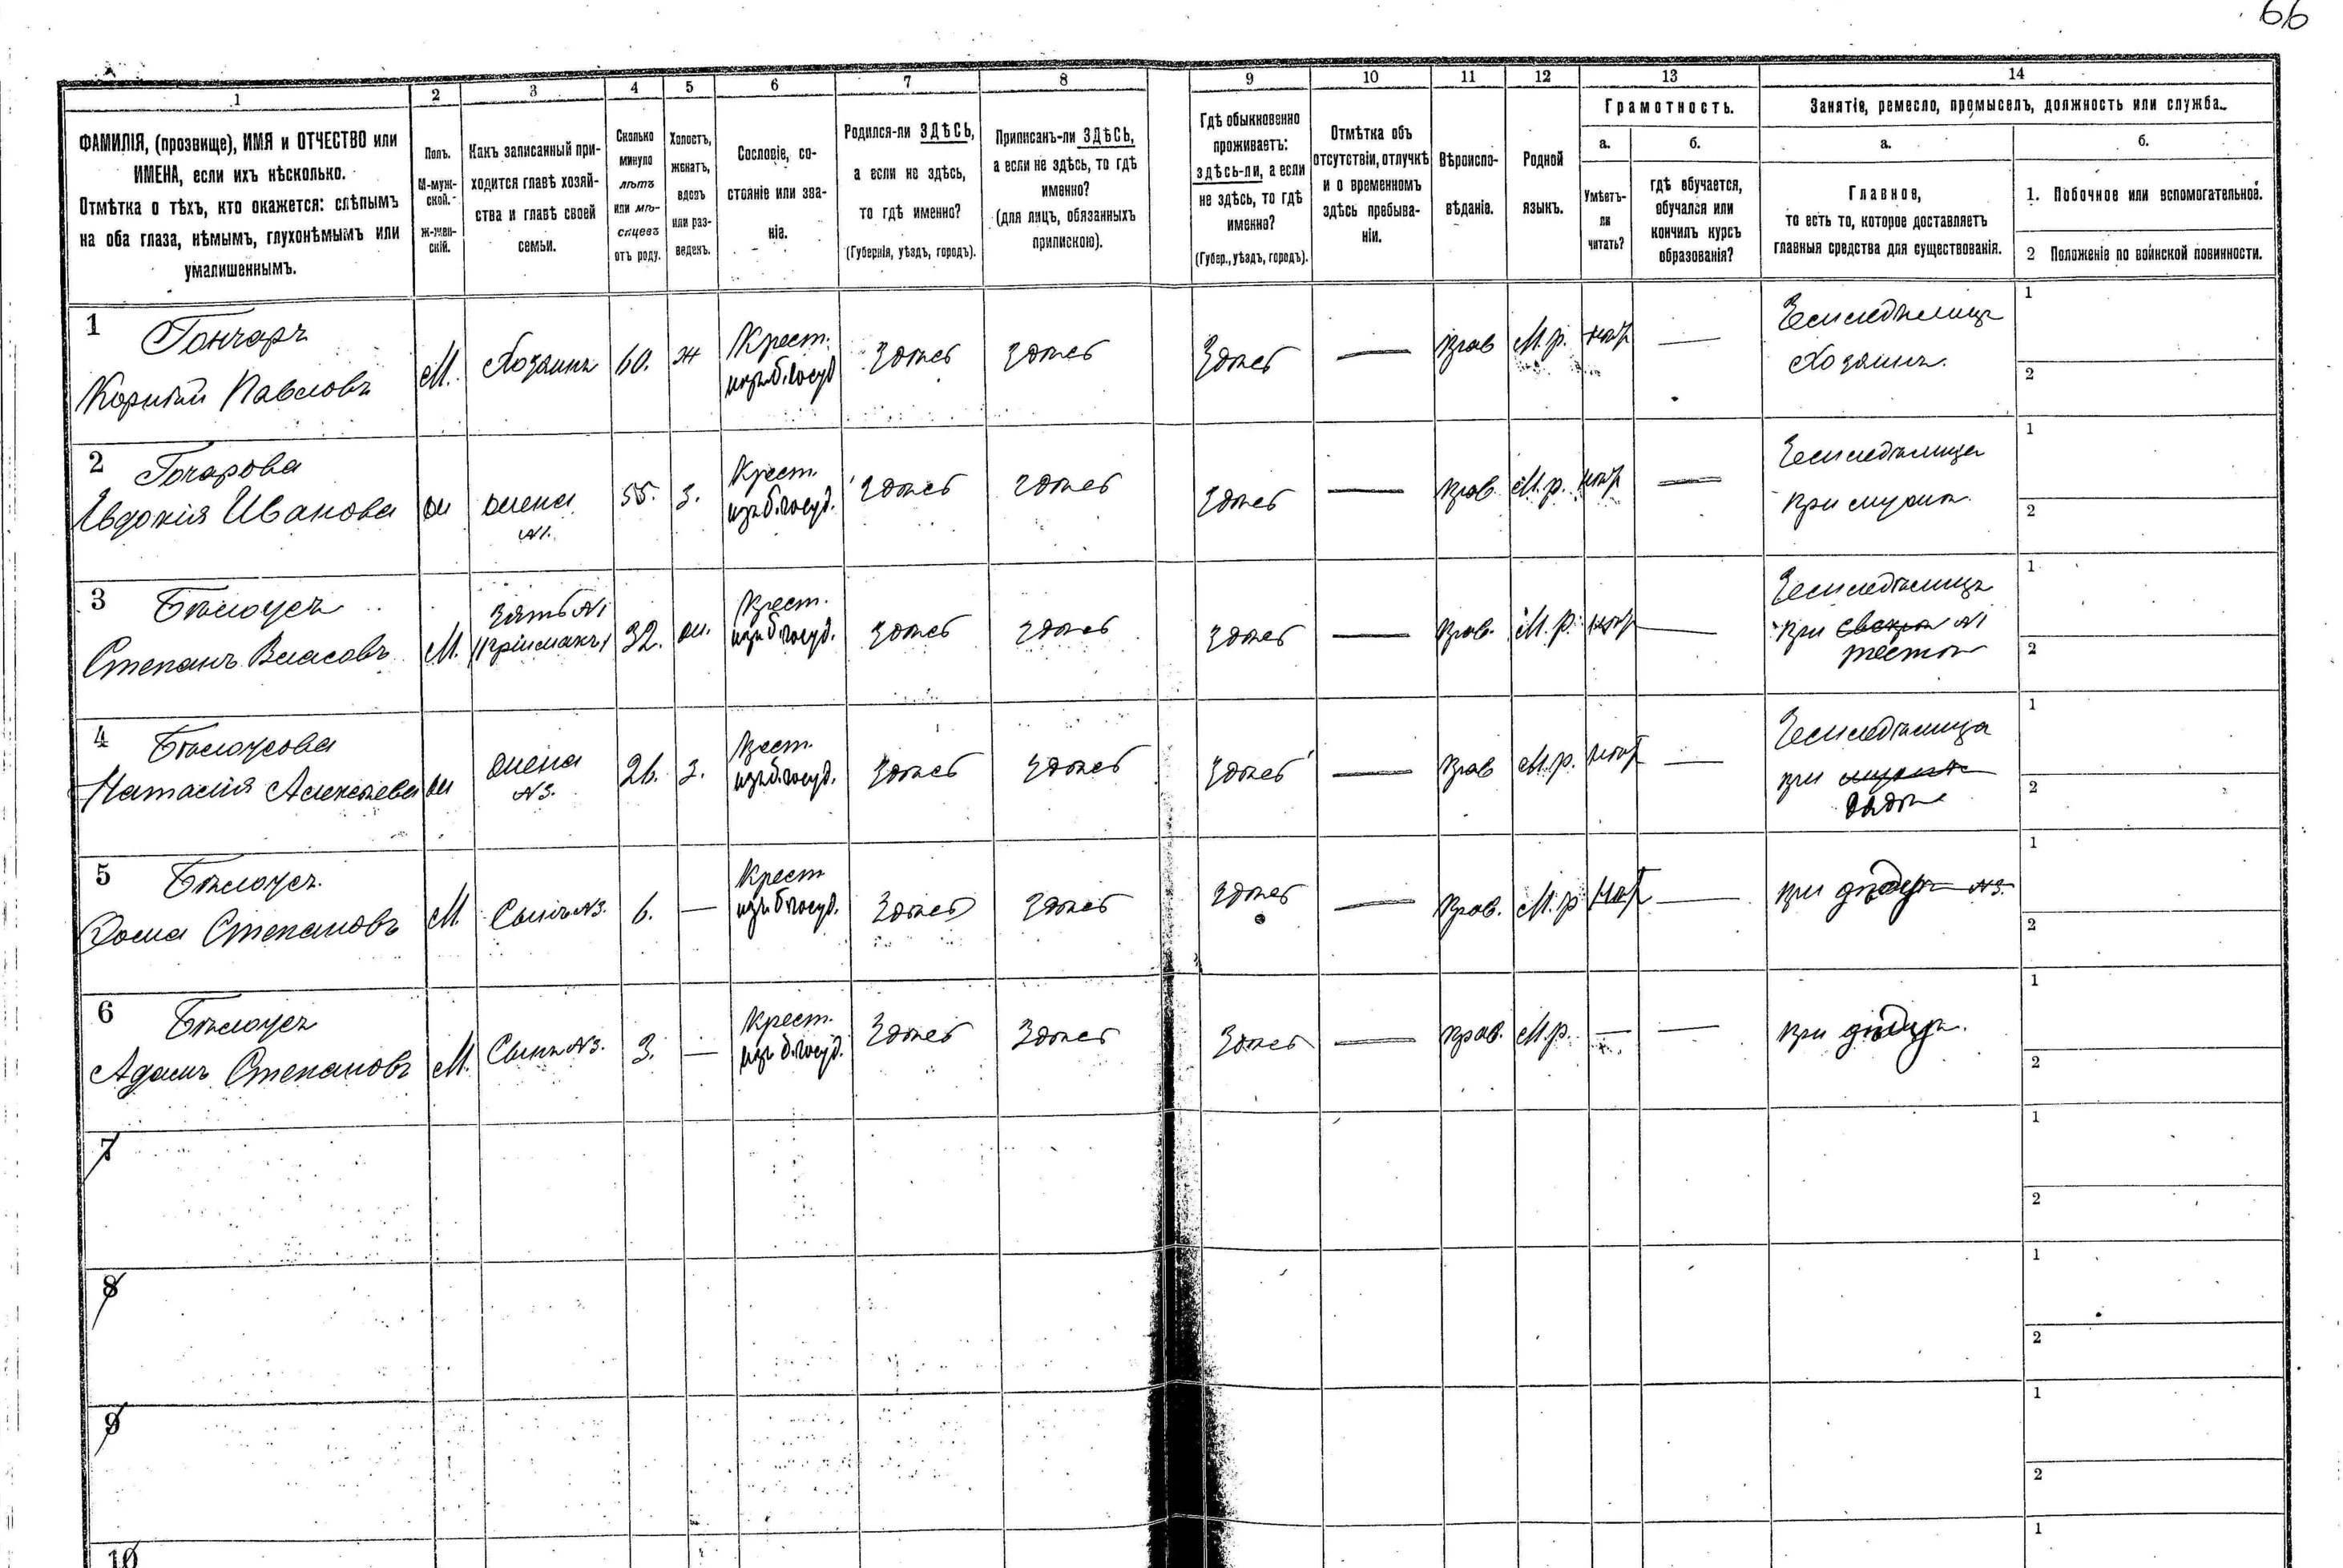 66
1 2 3 4 5 6 7 8 9 10 11 12 13 14
ФАМИЛІЯ, (прозвище), ИМЯ и ОТЧЕСТВО или
ИМЕНА, если ихъ нѣсколько.
Отмѣтка о тѣхъ, кто окажется: слѣпымъ
на оба глаза, нѣмымъ, глухонѣмымъ или
умалишеннымъ.
Полъ.
М-муж-
ской.
Ж-жен-
скій.
Какъ записанный при-
ходится главѣ хозяй-
ства и главѣ своей
семьи.
Сколько
минуло
лѣтъ
или мѣ-
сяцевъ
отъ роду.
Холостъ,
женатъ,
вдовъ
или раз-
веденъ.
Сословіе, со-
стояніе или зва-
ніе.
Родился-ли ЗДѢСЬ,
а если не здѣсь,
то гдѣ именно?
(Губернія, уѣздъ, городъ).
Приписанъ-ли ЗДѢСЬ,
а если не здѣсь, то гдѣ
именно?
(для лицъ, обязанныхъ
припискою).
Гдѣ обыкновенно
проживаетъ:
здѣсь-ли, а если
не здѣсь, то гдѣ
именно?
(Губер., уѣздъ, городъ).
Отмѣтка объ
отсутствіи, отлучкѣ
и о временномъ
здѣсь пребыва-
ніи.
Вѣроиспо-
вѣданіе.
Родной
языкъ.
Грамотность.
а.
Умѣетъ-
ли
читать?
б.
гдѣ обучается,
обучался или
кончилъ курсъ
образованія?
Занятіе, ремесло, промыселъ, должность или служба.
а.
Главное,
то есть то, которое доставляетъ
главныя средства для существованія.
б.
1. Побочное или вспомогательное.
2 Положеніе по воинской повинности.
1 Гончаръ
Корнѣй Павловъ
М. Хозяинъ 60. ж Крест. изъ б. госуд здѣсь здѣсь здѣсь — прав М. р. нѣт —
Земледѣлецъ
Хозяинъ.
1
2
2 Гочарова
Евдокія Иванова
ж жена №1. 55. з. Крест. изъ б. госуд. здѣсь здѣсь здѣсь — прав. М. р. нѣт —
Земледѣлица
при мужѣ
1
2
3 Бѣлоусъ
Степанъ Власовъ
М. Зять №1 (приймакъ) 32. ж. Крест. изъ б. госуд. здѣсь здѣсь здѣсь — прав. М. р. нѣт —
Земледѣлецъ
при свекрѣ №1
тестѣ
1
2
4 Бѣлоусова
Наталія Алексѣева
ж жена №3. 26. з. Крест. изъ б. госуд. здѣсь здѣсь здѣсь — прав М. р. нѣт —
Земледѣлица
при мужѣ
1
2
5 Бѣлоусъ.
Фома Степановъ
М Сынъ №3. 6. — Крест изъ б. госуд. здѣсь здѣсь здѣсь — прав. М. р нѣт —
при дѣдѣ №3.
1
2
6 Бѣлоусъ
Адамъ Степановъ
М. Сынъ №3. 3. — Крест. изъ б. госуд. здѣсь здѣсь здѣсь — прав. М. р. — —
при дѣдѣ.
1
2
7
1
2
8
1
2
9
1
2
10
1